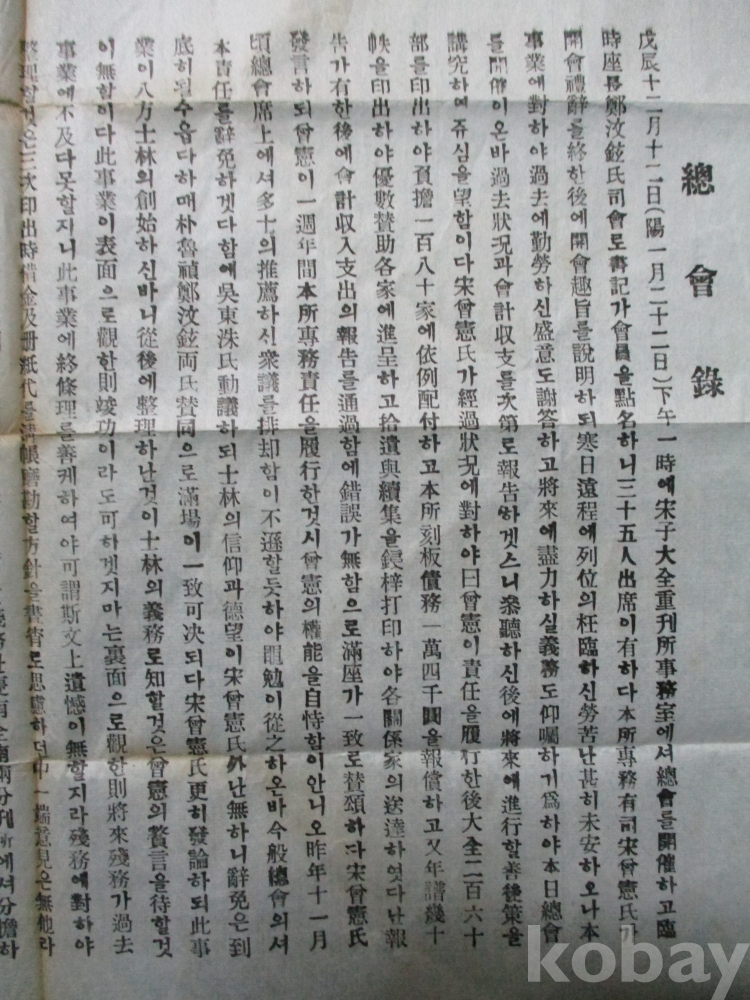 總會錄
戊辰十二月十二日(陽一月二十二日)下午一時에宋子大全重刊所事務室에셔總會를開催하고臨
時座長鄭汶鉉氏司會로書記가會員을點名하니三十五人出席이有하다本所專務有司宋曾憲氏가
開會禮辭를終한後에開會趣旨를說明하되寒日遠程에列位의枉臨하신勞苦난甚히未安하오나本
事業에對하야過去에勤勞하신盛意도謝答하고將來에盡力하실義務도仰囑하기爲하야本日總會
를開催이온바過去狀況과會計収支를次第로報告하겟스니叅聽하신後에將來에進行할善後策을
講究하여쥬심을望함이다宋曾憲氏가經過狀況에對하야曰曾憲이責任을履行한後大全二百六十
部를印出하야負擔一百八十家에依例配付하고本所刻板債務一萬四千圓을報償하고又年譜幾十
帙을印出하야優數賛助各家에進呈하고拾遺與續集을鋟梓打印하야各關係家의送達하엿다난報
告가有한後에會計収入支出의報告를通過함에錯誤가無함으로滿座가一致로賛頌하다宋曾憲氏
發言하되曾憲이一週年間本所專務責任을履行한것시曾憲의權能을自恃함이안니오昨年十一月
頃總會席上에셔多士의推薦하신衆議를排却함이不遜할듯하야黽勉이從之하온바今般總會의셔
本責任를辭免하겟다함에吳東洙氏動議하되士林의信仰과德望이宋曾憲氏外난無하니辭免은到
底히될수읍다하매朴魯禎鄭汶鉉両氏賛同으로滿場이一致可決되다宋曾憲氏更히發論하되此事
業이八方士林의創始하신바니從後에整理하난것이士林의義務로知할것은曾憲의贅言을待할것
이無함이다此事業이表面으로觀한則竣功이라도可하겟지마는裏面으로觀한則將來殘務가過去
事業에不及다못할지니此事業에終條理를善케하여야可謂斯文上遺憾이無할지라殘務에對하야
整理할것은三次印出時借金及册紙代를淸帳磨勘할方針을晝宵로思慮하더中一端意見은無他라
有全南兩分刊所에셔分擔하
kobay